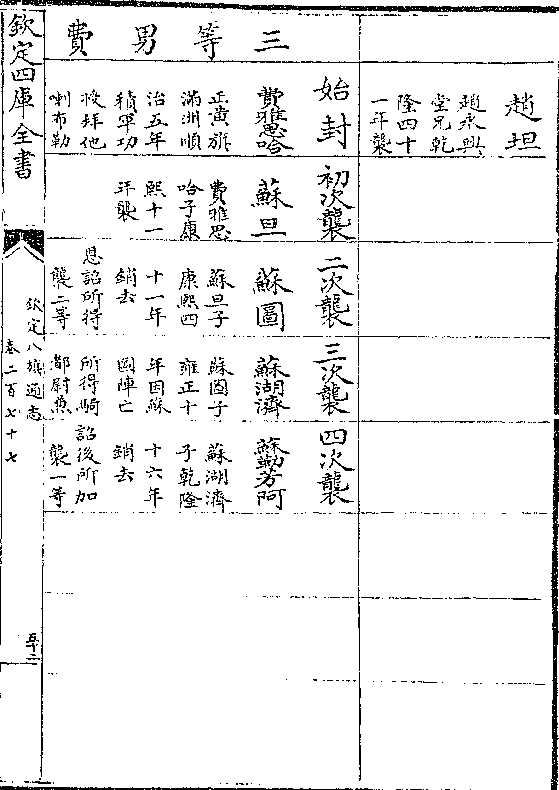 趙坦
趙永興
堂兄乾
隆四十
一年襲
三等男費
始封
費雅思哈
正黃旗
滿洲順
治五年
積軍功
授拜他
喇布勒
初次襲
蘇旦
費雅思
哈子康
熙十一
年襲
二次襲
蘇圖
蘇旦子
康熙四
十一年
銷去
恩詔所得
襲二等
三次襲
蘇湖濟
蘇圖子
雍正十
年因蘇
圖陣亡
所得騎
都尉兼
四次襲
蘇勒芳阿
蘇湖濟
子乾隆
十六年
銷去
詔後所加
襲一等
欽定四庫全書
欽定八旗通志
卷二百七十七
五十二